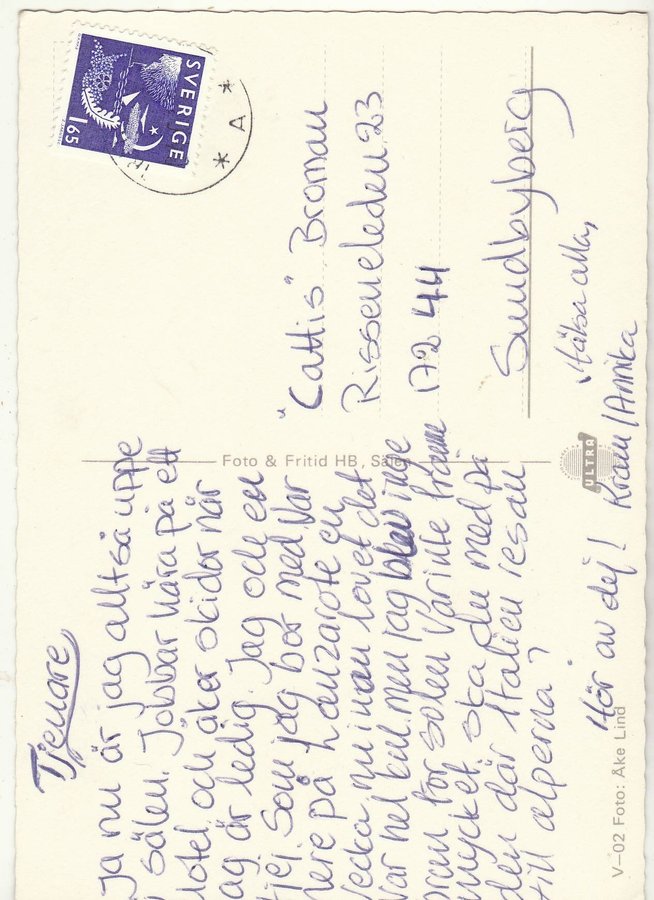 SVERIGE
165
* A *
"Cattis" Broman
Risseneleden 23
172 44
Sundbyberg
Foto & Fritid HB, Sälen
ULTRA
V-02 Foto: Åke Lind
Tjenare
Ja nu är jag alltså uppe
i sälen. Jobbar nära på ett
Hotel och åker skidor när
jag är ledig. Jag och en
tjej som jag bor med var
nere på Lanzarote en
vecka, nu innan lovet det
var hel kul men jag blev inge
brun för solen var inte framme
mycket. Ska du med på
den där Italien resan
till alperna?
Hör av dej! Kram/Annika
Hälsa alla,